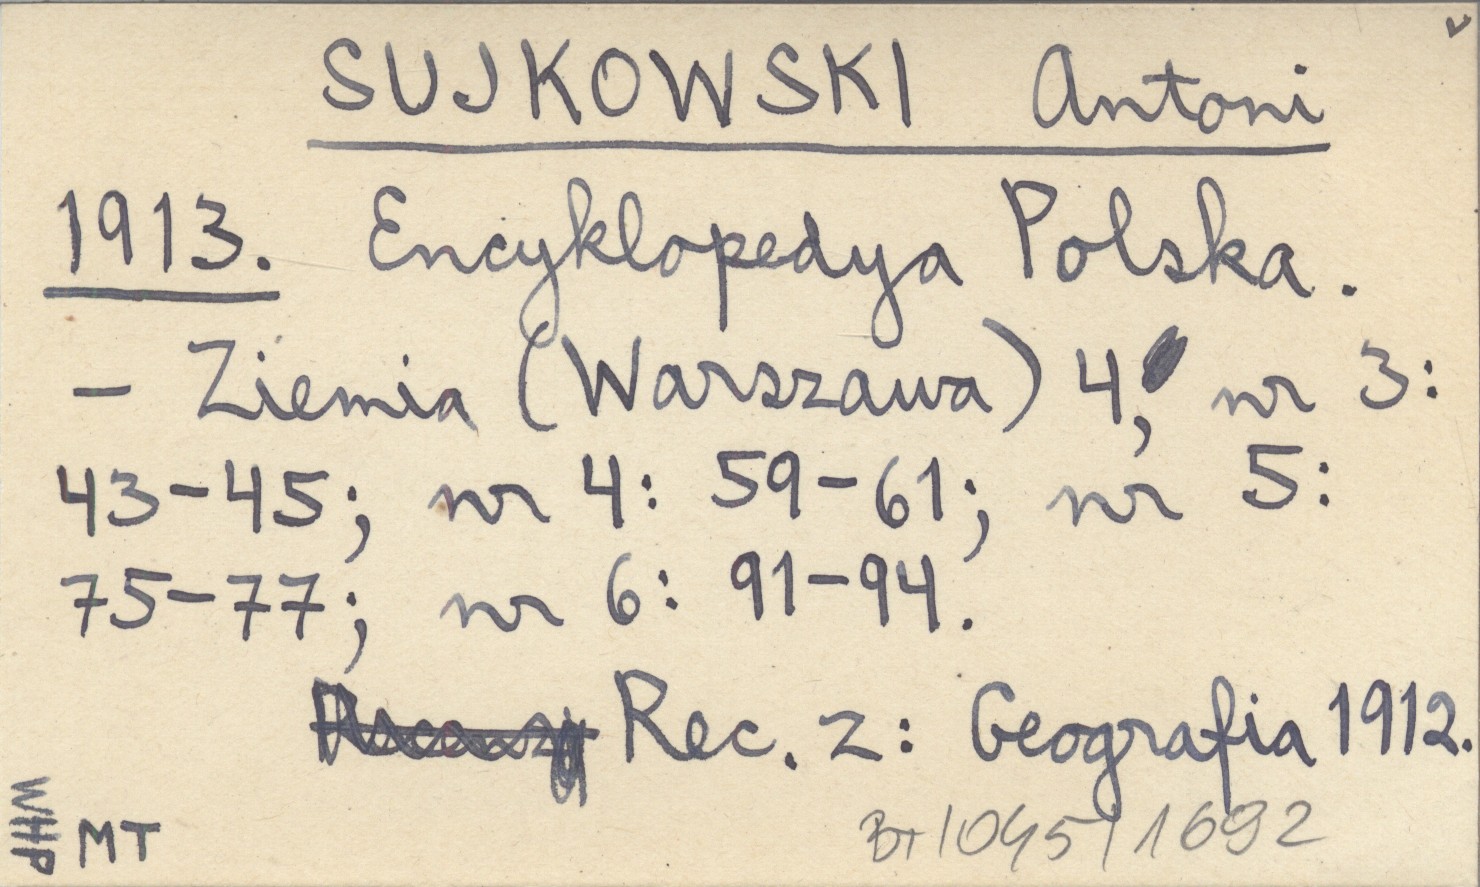 SUJKOWSKI Antoni
1913. Encyklopedya Polska.
- Ziemia (Warszawa) 4, nr 3:
43-45; nr 4: 59-61; nr 5:
75-77; nr 6: 91-94.
Rec. z: Geografia 1912.
WHP
MT
BT/045/1692